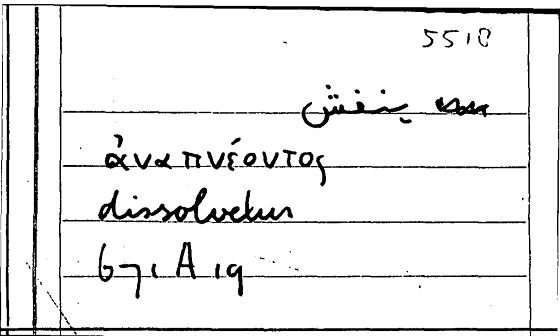 5518
ينفش
ἀναπνέοντος
dissolvetur
671 A 19